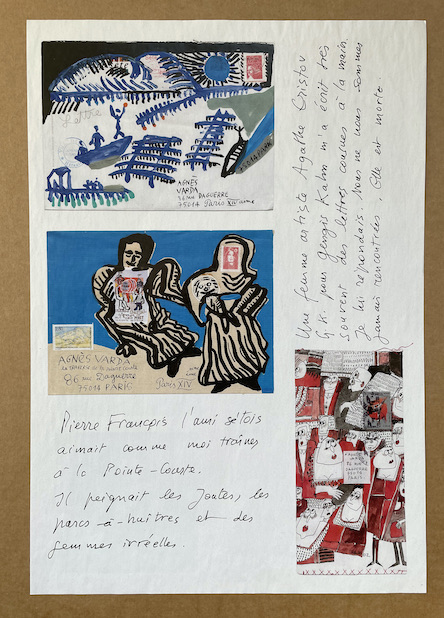 Lettre
AGNÈS
VARDA
86 RUE DAGUERRE
75014 Paris XIVème
75014 PARIS
AGNÈS VARDA
86 rue Daguerre
75014 PARIS
Paris XIV
Pierre François l'ami sètois
aimait comme moi traîner
à la Pointe-Courte.
Il peignait les Joutes, les
parcs-à-huîtres et des
femmes irréelles.
Une femme artiste Agathe Cristov
G.K. pour Gengis Kahn m'a écrit très
souvent des lettres cousues à la main.
Je lui répondais. Nous ne nous sommes
jamais rencontrées. Elle est morte.